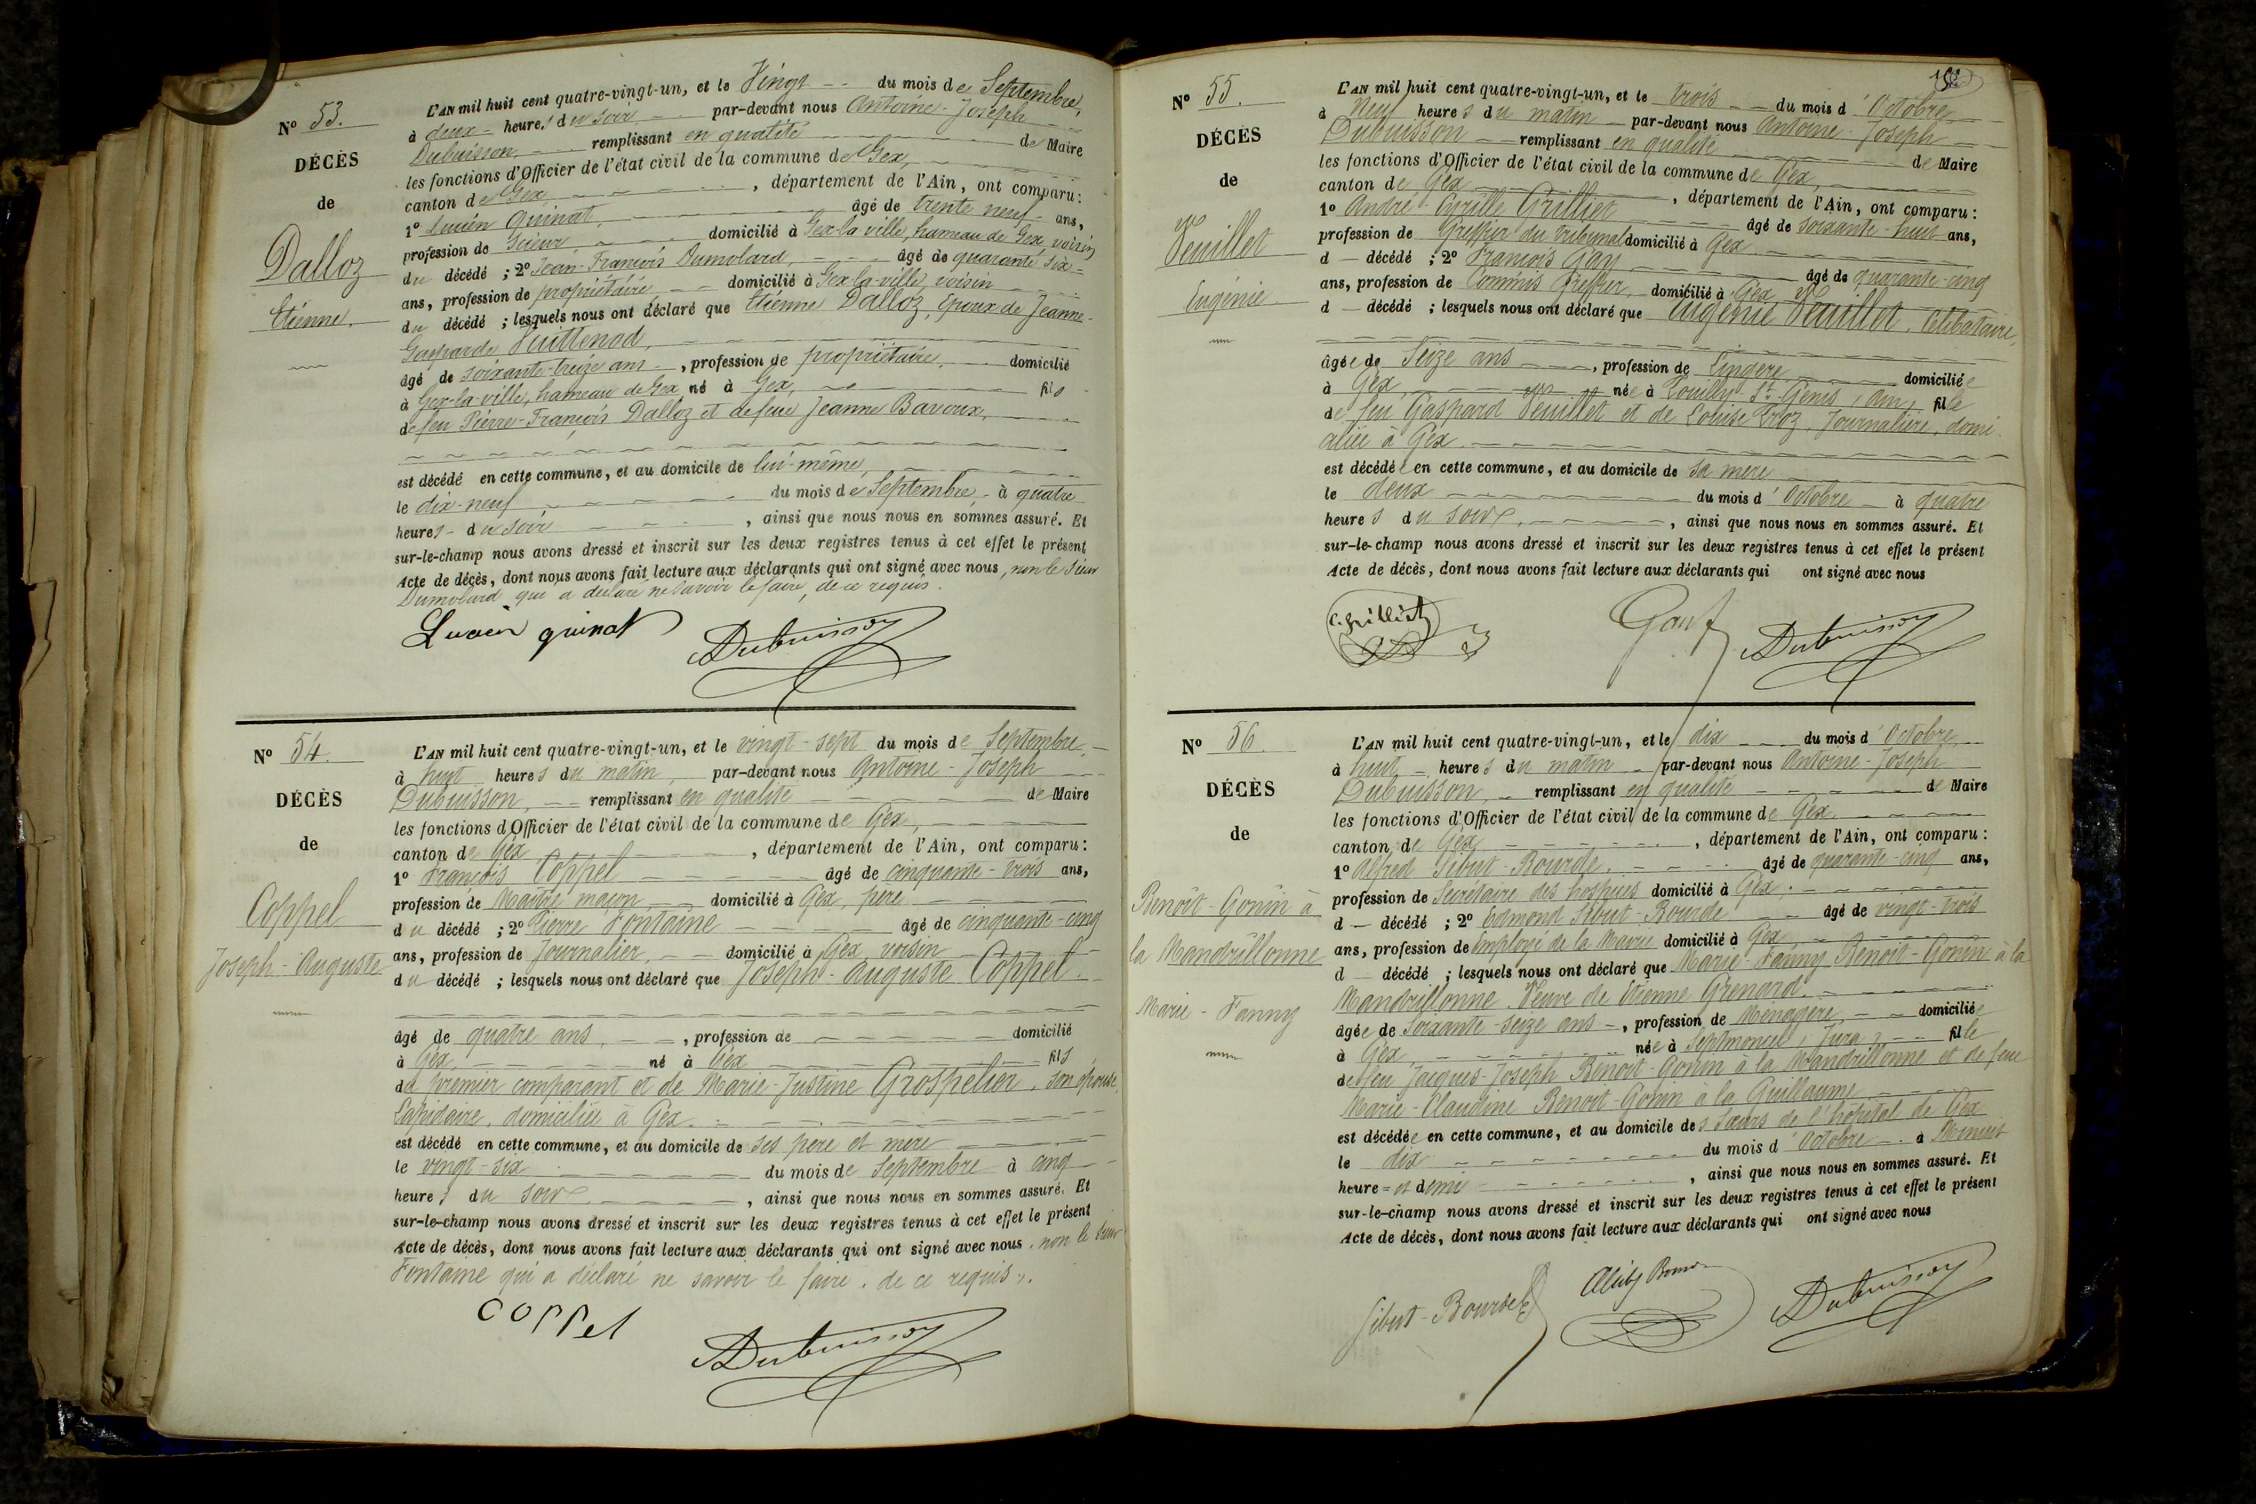 N° 53.
DÉCÈS
de
Dalloz
Etienne.
L'AN mil huit cent quatre-vingt-un, et le Vingt du mois de Septembre,
à deux heures du soir par-devant nous Antoine-Joseph
Dubuisson, remplissant en qualité de Maire
les fonctions d'Officier de l'état civil de la commune de Gex,
canton de Gex, département de l'Ain, ont comparu:
1° Lucien Quinat, âgé de trente neuf ans,
profession de Scieur, domicilié à Gex-la ville, hameau de Gex, voisin
du décédé ; 2° Jean-François Dumolard, âgé de quarante six
ans, profession de propriétaire domicilié à Gex-la-ville, voisin
du décédé ; lesquels nous ont déclaré que Etienne Dalloz, époux de Jeanne-
Gasparde Vuittenod,
âgé de soixante-treize ans, profession de propriétaire, domicilié
à Gex-la-ville, hameau de Gex né à Gex, fils
de feu Pierre-François Dalloz et de feue Jeanne Bavoux,
est décédé en cette commune, et au domicile de lui-même,
le dix-neuf du mois de Septembre à quatre
heures du soir, ainsi que nous nous en sommes assuré. Et
sur-le-champ nous avons dressé et inscrit sur les deux registres tenus à cet effet le présent
Acte de décès, dont nous avons fait lecture aux déclarants qui ont signé avec nous, non le Sieur
Dumolard qui a déclaré ne savoir le faire, de ce requis.
Lucien quinat Dubuisson
N° 54.
DÉCÈS
de
Coppel
Joseph-Auguste
L'AN mil huit cent quatre-vingt-un, et le vingt-sept du mois de Septembre,
à huit heures du matin, par-devant nous Antoine-Joseph
Dubuisson, remplissant en qualité de Maire
les fonctions d'Officier de l'état civil de la commune de Gex,
canton de Gex, département de l'Ain, ont comparu:
1° François Coppel âgé de cinquante-trois ans,
profession de Maître maçon, domicilié à Gex, père
du décédé ; 2° Pierre Fontaine âgé de cinquante-cinq
ans, profession de Journalier, domicilié à Gex voisin
du décédé ; lesquels nous ont déclaré que Joseph-Auguste Coppel.
âgé de quatre ans, profession de domicilié
à Gex né à Gex fils
du premier comparant et de Marie-Justine Grospelier, son épouse,
Lapidaire, domiciliée à Gex.
est décédé en cette commune, et au domicile de ses père et mère
le vingt-six du mois de Septembre à cinq
heures du soir, ainsi que nous nous en sommes assuré. Et
sur-le-champ nous avons dressé et inscrit sur les deux registres tenus à cet effet le présent
Acte de décès, dont nous avons fait lecture aux déclarants qui ont signé avec nous, non le Sieur
Fontaine qui a déclaré ne savoir le faire, de ce requis.
COPPEl Dubuisson
N° 55.
DÉCÈS
de
Veuillet
Eugénie
L'AN mil huit cent quatre-vingt-un, et le trois du mois d'Octobre,
à Neuf heures du matin par-devant nous Antoine-Joseph
Dubuisson remplissant en qualité de Maire
les fonctions d'Officier de l'état civil de la commune de Gex,
canton de Gex, département de l'Ain, ont comparu:
1° André Cyrille Grilliet âgé de soixante-huit ans,
profession de Greffier du Tribunal domicilié à Gex
d décédé ; 2° François Gay âgé de quarante-cinq
ans, profession de Commis Greffier, domicilié à Gex
d décédé ; lesquels nous ont déclaré que Eugénie Veuillet, Célibataire,
âgée de Seize ans, profession de Lingère domiciliée
à Gex, née à Pouilly-St-Genis, Ain, fille
de feu Gaspard Veuillet et de Louise Proz, Journalière, domi-
ciliée à Gex
est décédée en cette commune, et au domicile de sa mère
le deux du mois d'Octobre à quatre
heures du soir, ainsi que nous nous en sommes assuré. Et
sur-le-champ nous avons dressé et inscrit sur les deux registres tenus à cet effet le présent
Acte de décès, dont nous avons fait lecture aux déclarants qui ont signé avec nous
C. Grilliet Gay f Dubuisson
N° 56.
DÉCÈS
de
Benoît-Gonin à
la Mandrillonne
Marie-Fanny
L'AN mil huit cent quatre-vingt-un, et le dix du mois d'Octobre
à huit heures du matin par-devant nous Antoine-Joseph
Dubuisson, remplissant en qualité de Maire
les fonctions d'Officier de l'état civil de la commune de Gex
canton de Gex, département de l'Ain, ont comparu:
1° Alfred Sibut-Bourde, âgé de quarante-cinq ans,
profession de Secrétaire des hospices domicilié à Gex,
d décédé ; 2° Edmond Sibut-Bourde âgé de vingt-trois
ans, profession de Employé de la Mairie domicilié à Gex
d décédé ; lesquels nous ont déclaré que Marie-Fanny Benoit-Gonin à la
Mandrillonne Veuve de Etienne Grenard.
âgée de soixante-seize ans, profession de Ménagère, domiciliée
à Gex, née à Septmoncel, Jura, fille
de feu Jacques-Joseph Benoit-Gonin à la Mandrillonne et de feue
Marie-Claudine Benoit-Gonin à la Guillaume
est décédée en cette commune, et au domicile des Sœurs de l'hôpital de Gex
le dix du mois d'Octobre à Minuit
heure et demie, ainsi que nous nous en sommes assuré. Et
sur-le-champ nous avons dressé et inscrit sur les deux registres tenus à cet effet le présent
Acte de décès, dont nous avons fait lecture aux déclarants qui ont signé avec nous
Sibut-Bourde Dubuisson